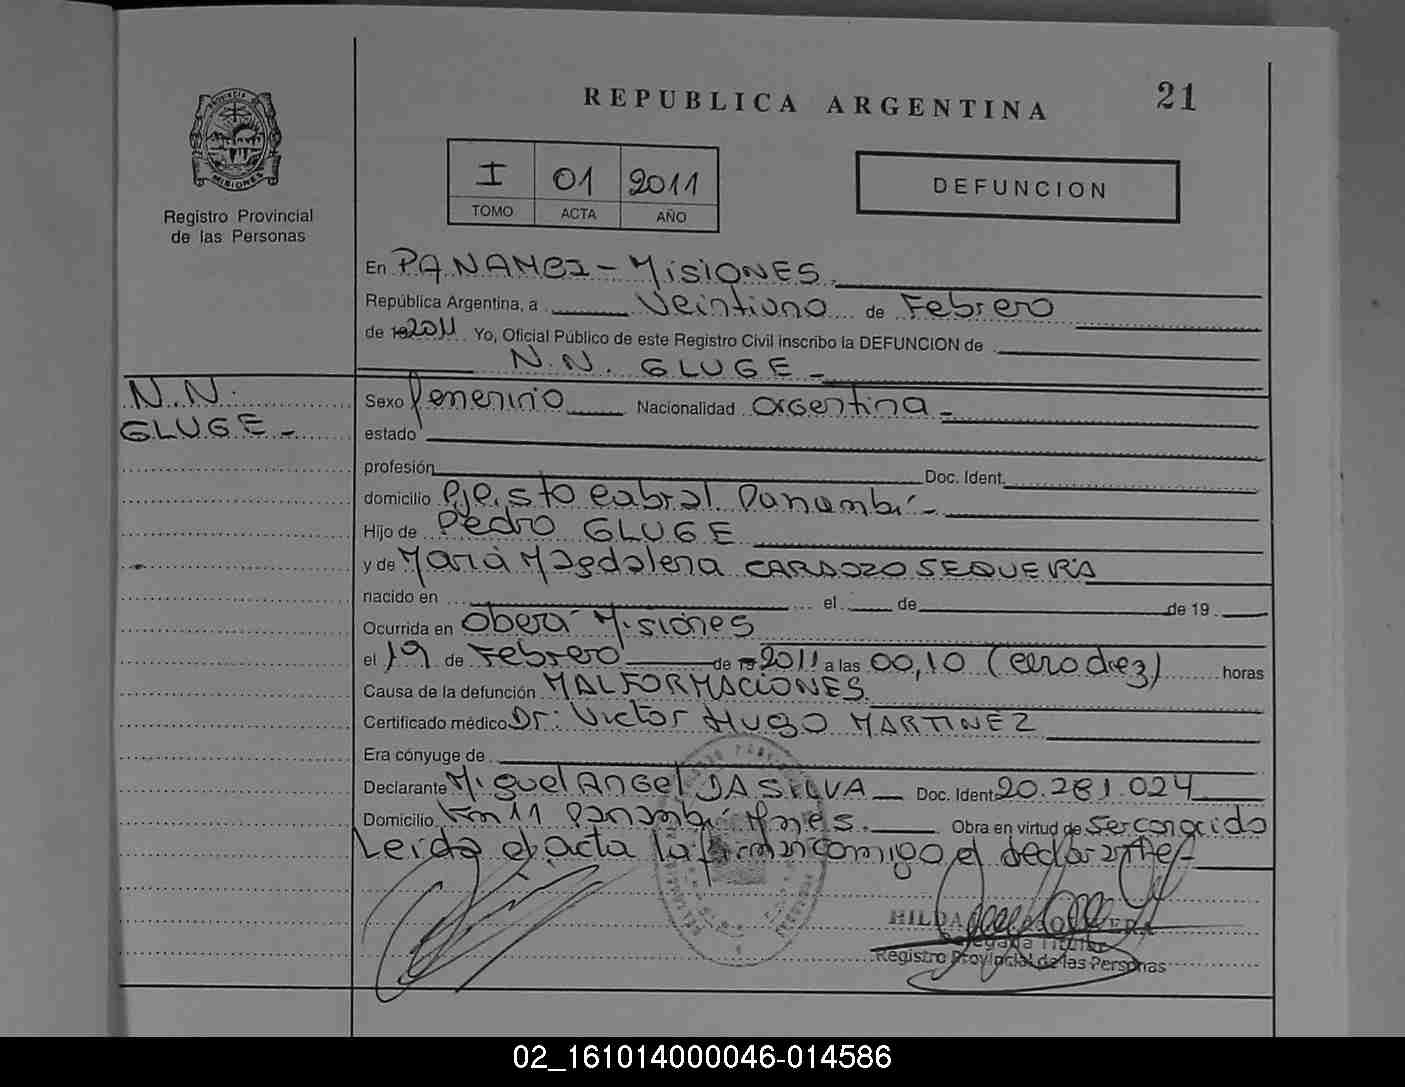 REPUBLICA ARGENTINA
21
PROVINCIA DE
MISIONES
Registro Provincial
de las Personas
I 01 2011
TOMO ACTA AÑO
DEFUNCION
En PANAMBI - MISIONES
República Argentina, a Veintiuno de Febrero
de 19 2011 Yo, Oficial Público de este Registro Civil inscribo la DEFUNCION de
N.N. GLUGE -
N.N.
GLUGE -
Sexo femenino Nacionalidad argentina -
estado
profesión Doc. Ident.
domicilio Pje. Sto Cabral Panambí -
Hijo de Pedro GLUGE
y de María Magdalena CARDOZO SEQUEIRA
nacido en el de de 19
Ocurrida en Oberá Misiones
el 19 de Febrero de 19 2011 a las 00,10 (cero diez) horas
Causa de la defunción MALFORMACIONES
Certificado médico Dr: Victor HUGO MARTINEZ
Era cónyuge de
Declarante Miguel Angel DA SILVA Doc. Ident. 20.281.024
Domicilio Km 11 Panambí Mnes. Obra en virtud de ser conocido
Leida el acta la firman comigo el declarante -
HILDA
Delegada Titular
Registro Provincial de las Personas
02_161014000046-014586